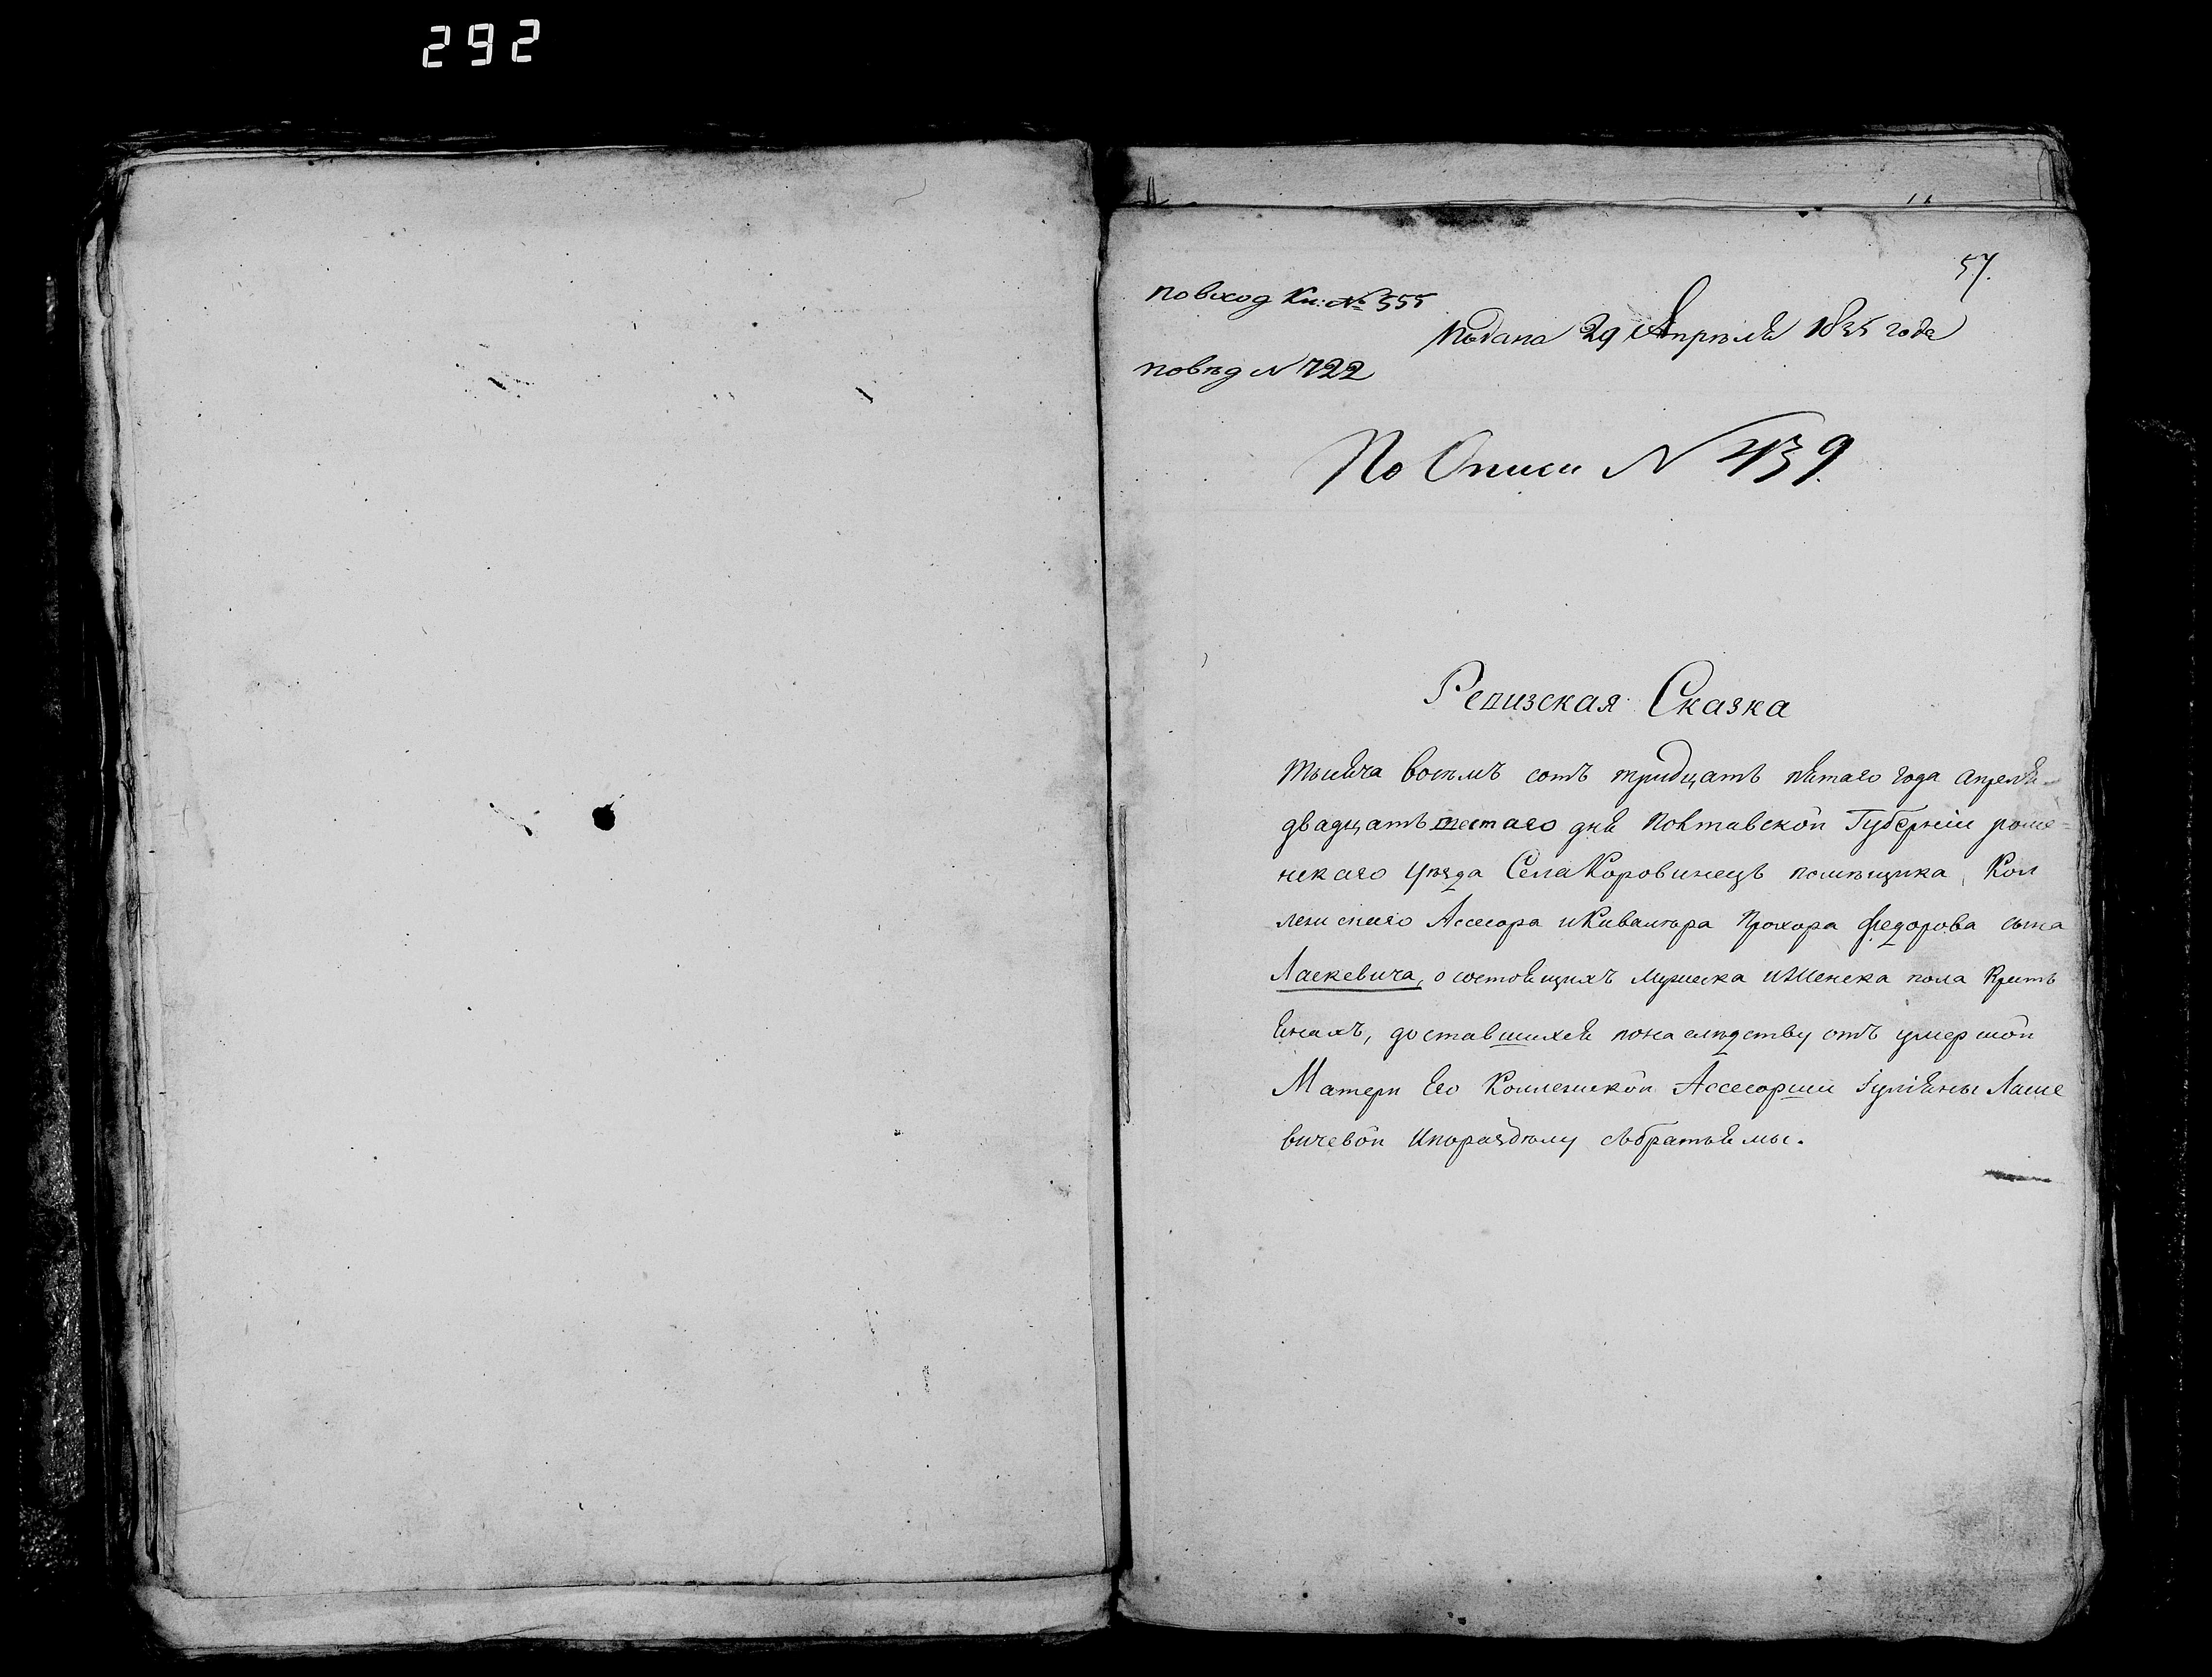 292
57.
по вход Кн: № 555
Подана 29 Апрѣля 1835 года
по вѣд N 722
По Описи N 439.
Ревизская Сказка
Тысяча восѣмъ сотъ тридцать пятаго года апреля
двадцать шестаго дня Полтавской Губерніи роме=
нскаго уѣзда Села Коровинецъ помѣщика Кол
лежскаго Ассесора и Кавалѣра Прохора Федорова сына
Ласкевича, о состоящихъ мужеска и женска пола Крить
янахъ, доставшихся по наслѣдству отъ умершой
Матери Его Коллежской Ассесорши Іуліяны Ласке
вичевой и по раздѣлу съ братьями.